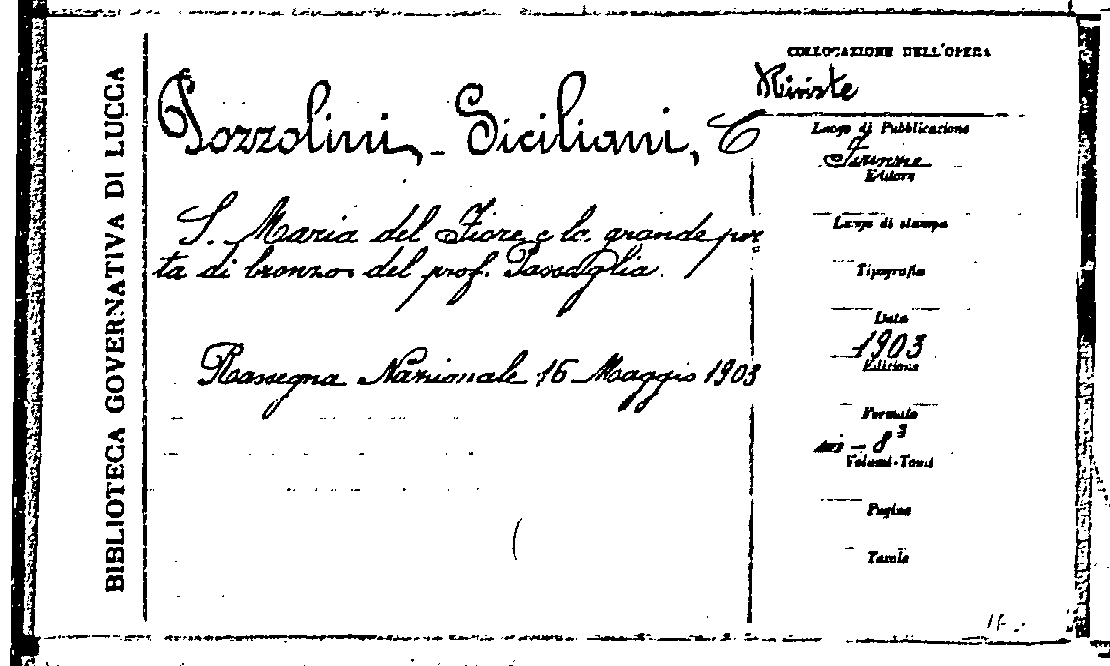 BIBLIOTECA GOVERNATIVA DI LUCCA
Pozzolini-Siciliani, C
S. Maria del Fiore e la grande por
ta di bronzo del prof. Passaglia.
Rassegna Nazionale 16 Maggio 1903
COLLOCAZIONE DELL'OPERA
Riviste
Luogo di Pubblicazione
Firenze
Editore
Luogo di stampa
Tipografia
Data
1903
Edizione
Formato
in-8°
Volumi-Tomi
Pagine
Tavole